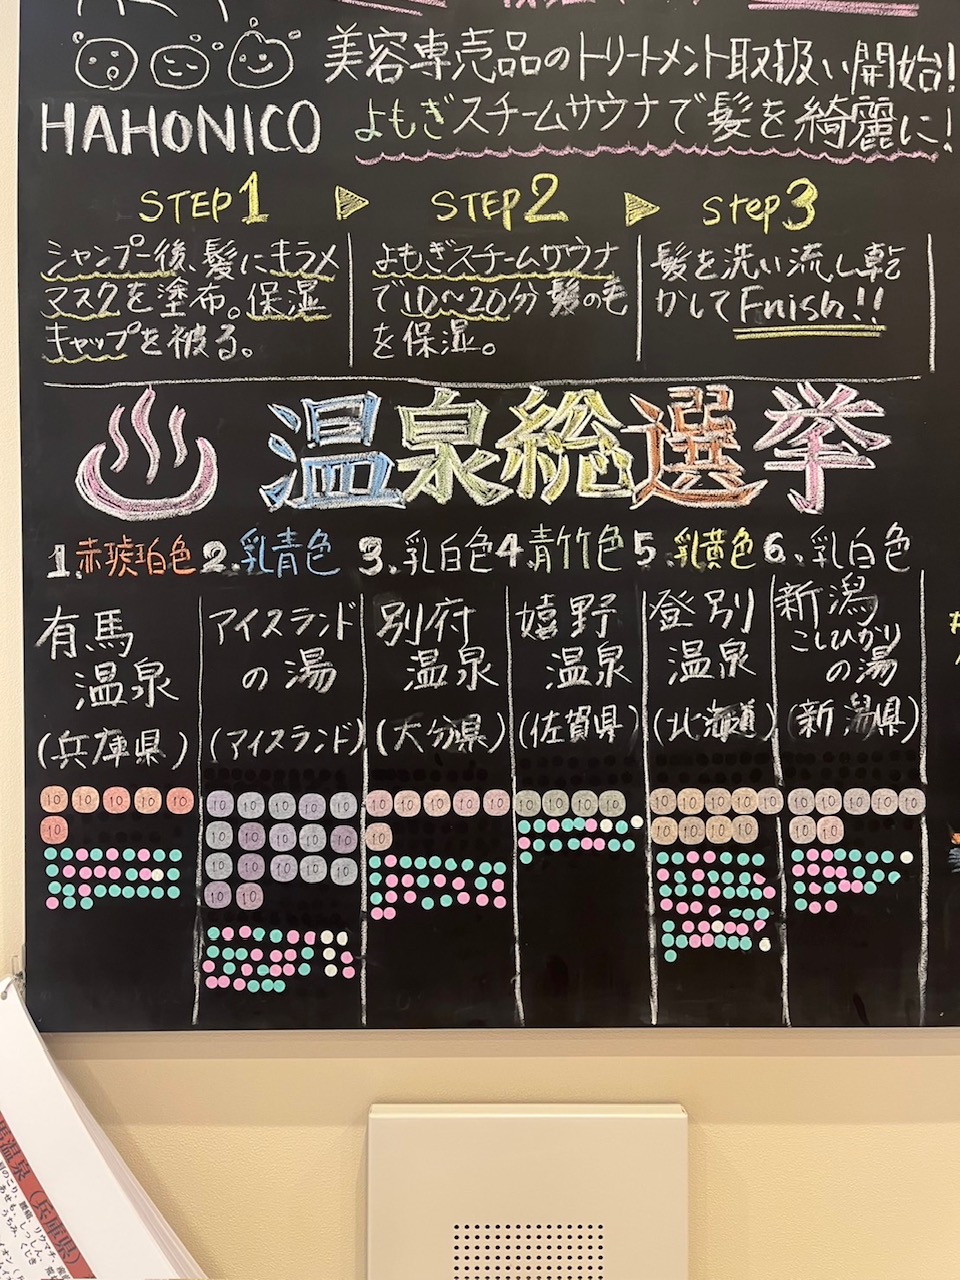 美容専売品のトリートメント取扱い開始!
HAHONICO よもぎスチームサウナで髪を綺麗に!
STEP1
シャンプー後、髪にキラメ
マスクを塗布。保湿
キャップを被る。
STEP2
よもぎスチームサウナ
で10~20分 髪の毛
を保湿。
step3
髪を洗い流し乾
かしてFnish!!
温泉総選挙
1.赤琥珀色
有馬
温泉
(兵庫県)
2.乳青色
アイスランド
の湯
(アイスランド)
3.乳白色
別府
温泉
(大分県)
4.青竹色
嬉野
温泉
(佐賀県)
5.乳黄色
登別
温泉
(北海道)
6.乳白色
新潟
こしひかり
の湯
(新潟県)
10 10 10 10 10
10
10 10 10 10 10
10 10 10 10 10
10 10 10 10 10
10 10
10 10 10 10 10
10
10 10 10 10
10 10 10 10 10
10 10 10 10
10 10 10 10 10
10 10
馬温泉(兵庫県)